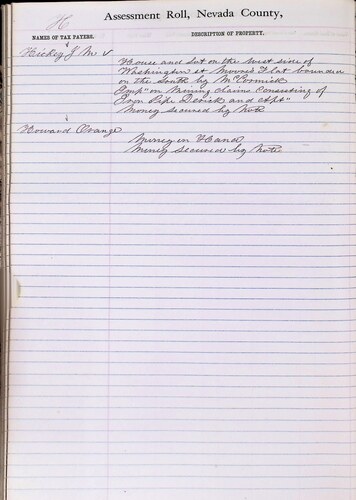 H
Assessment Roll, Nevada County,
NAMES OF TAX PAYERS.
DESCRIPTION OF PROPERTY.
Hickey J M ✓
House and Lot on the West side of
Washington st Moores Flat bounded
on the South by McCormick
Imp" on Mining Claims Consisting of
Iron Pipe Derick and App"
Money secured by Note
Howard Orange
Money in Hand
Money secured by Note